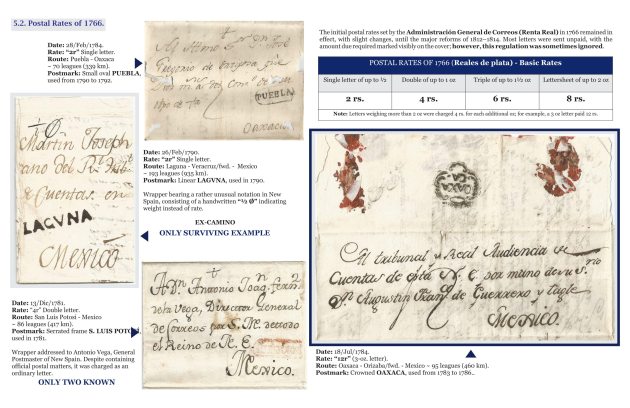 5.2. Postal Rates of 1766.
Date: 28/Feb/1784.
Rate: "2r" Single letter.
Route: Puebla - Oaxaca
~ 70 leagues (339 km).
Postmark: Small oval PUEBLA,
used from 1790 to 1792.
PUEBLA
Oaxaca
The initial postal rates set by the Administración General de Correos (Renta Real) in 1766 remained in
effect, with slight changes, until the major reforms of 1812–1814. Most letters were sent unpaid, with the
amount due required marked visibly on the cover; however, this regulation was sometimes ignored.
POSTAL RATES OF 1766 (Reales de plata) - Basic Rates
Single letter of up to ½
Double of up to 1 oz
Triple of up to 1½ oz
Lettersheet of up to 2 oz
2 rs.
4 rs.
6 rs.
8 rs.
Note: Letters weighing more than 2 oz were charged 4 rs. for each additional oz; for example, a 3 oz letter paid 12 rs.
Martin Joseph
de Cuentas en
LAGVNA
Mexico
Date: 26/Feb/1790.
Rate: "2r" Single letter.
Route: Laguna - Veracruz/fwd. - Mexico
~ 193 leagues (935 km).
Postmark: Linear LAGVNA, used in 1790.
Wrapper bearing a rather unusual notation in New
Spain, consisting of a handwritten "½ Ø" indicating
weight instead of rate.
EX-CAMINO
ONLY SURVIVING EXAMPLE
Date: 13/Dic/1781.
Rate: "4r" Double letter.
Route: San Luis Potosi - Mexico
~ 86 leagues (417 km).
Postmark: Serrated frame S. LUIS POTOSI,
used in 1781.
Wrapper addressed to Antonio Vega, General
Postmaster of New Spain. Despite containing
official postal matters, it was charged as an
ordinary letter.
ONLY TWO KNOWN
A Dn. Antonio Joaqn. fern
de la Vega, Director General
de Correos por S. M. de todo
el Reino de N. E.
Mexico.
OAXACA
Al tribunal y Real Audiencia de
Cuentas de esta N. E. por mano de su
Dn. Agustin Guerrero y tagle
Mexico.
Date: 18/Jul/1784.
Rate: "12r" (3-oz. letter).
Route: Oaxaca - Orizaba/fwd. - Mexico ~ 95 leagues (460 km).
Postmark: Crowned OAXACA, used from 1783 to 1786..